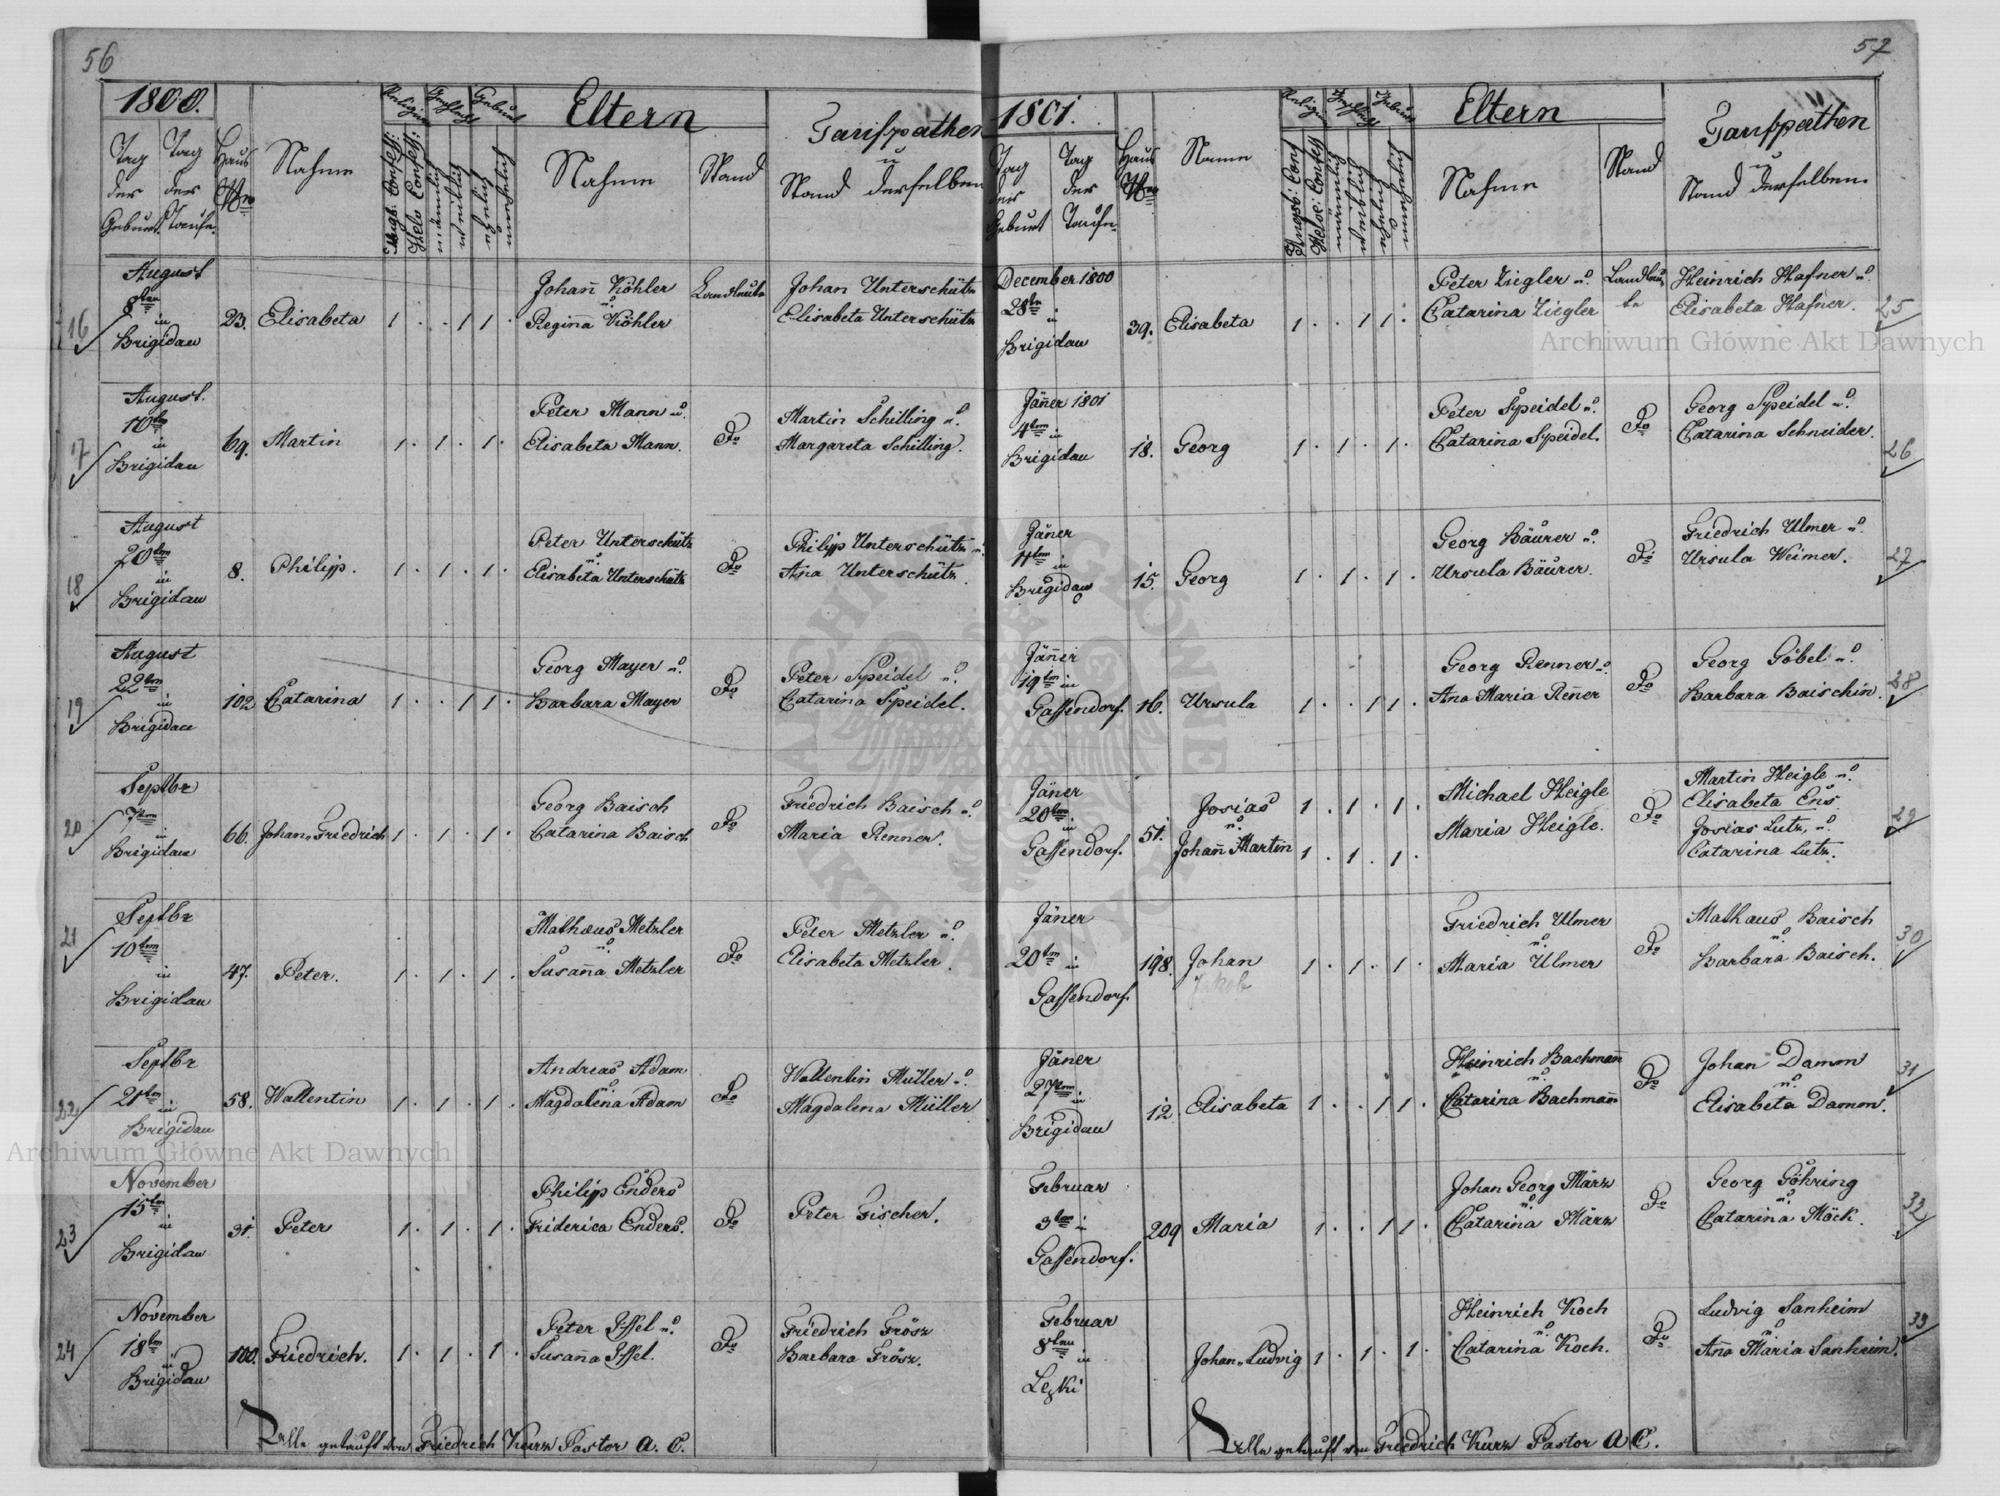 56
1800.
Tag der Geburt
Tag der Taufe
Haus Nro
Nahme
Religion
Geschlecht
Geburt
Augsb: Confess:
Helv: Confess:
männlich
weiblich
ehelich
unehelich
Eltern
Nahme
Stand
Taufpathen
u
Stand derselben
16
August
8ten
in
Brigidau
23.
Elisabeta
1 . . 1 1 .
Johan̄ Köhler
u.
Regina Köhler
Landleute
Johan Unterschütz
Elisabeta Unterschütz
17
August.
10ten
in
Brigidau
69.
Martin
1 . 1 . 1 .
Peter Mann u.
Elisabeta Mann.
do
Martin Schilling u.
Margareta Schilling.
18
August
20ten
in
Brigidau
8.
Philipp.
1 . 1 . 1 .
Peter Unterschütz
u.
Elisabeta Unterschütz
do
Philipp Unterschütz u.
Ana Unterschütz
19
August
22ten
in
Brigidau
102
Catarina
1 . . 1 1 .
Georg Mayer u.
Barbara Mayer
do
Peter Speidel u.
Catarina Speidel.
20
Septbr
7ten
in
Brigidau
66.
Johan Friedrich
1 . 1 . 1 .
Georg Baisch
Catarina Baisch
do
Friedrich Baisch u.
Maria Renner.
21
Septbr
10ten
in
Brigidau
47.
Peter.
1 . 1 . 1 .
Mathæus Metzler
u.
Susan̄a Metzler
do
Peter Metzler u.
Elisabeta Metzler
22
Septbr
21ten
in
Brigidau
58.
Wallentin
1 . 1 . 1 .
Andreas Adam
u.
Magdalena Adam
do
Wallentin Müller u.
Magdalena Müller
23
November
15ten
in
Brigidau
31.
Peter
1 . 1 . 1 .
Philipp Enders
Friderica Enders.
do
Peter Fischer.
24
November
18ten
in
Brigidau
100.
Friedrich.
1 . 1 . 1 .
Peter Issel u.
Susan̄a Issel.
do
Friedrich Frösz
Barbara Frösz.
Alle getauft von Friedrich Kurz Pastor A. C.
57
1801.
Tag der Geburt
Tag der Taufe
Haus Nro
Name
Religion
Geschlecht
Geburt
Augsb: Conf
Helve: Confess
männlich
weiblich
ehelich
unehelich
Eltern
Nahme
Stand
Taufpathen
u
Stand derselben.
December 1800
28ten
in
Brigidau
39.
Elisabeta
1 . . 1 1 .
Peter Ziegler u.
Catarina Ziegler
Landleute
Heinrich Hafner u.
Elisabeta Hafner.
25
Jäner 1801
4ten in
Brigidau
18.
Georg
1 . 1 . 1 .
Peter Speidel u.
Catarina Speidel.
do
Georg Speidel u.
Catarina Schneider.
26
Jäner
11ten in
Brigidau
15.
Georg
1 . 1 . 1 .
Georg Bäurer u.
Ursula Bäurer.
do
Friedrich Ulmer u.
Ursula Weimer.
27
Jäner
19ten in
Gassendorf.
16.
Ursula
1 . . 1 1 .
Georg Renner u.
Ana Maria Ren̄er
do
Georg Göbel u.
Barbara Baischin.
28
Jäner
20ten
in
Gassendorf.
51.
Josias
u.
Johan̄ Martin
1 . 1 . 1 .
1 . 1 . 1 .
Michael Heigle
Maria Heigle.
do
Martin Heigle u.
Elisabeta Ens
Josias Lutz, u.
Catarina Lutz.
29
Jäner
20ten
in
Gassendorf.
198.
Johan
Jakob
1 . 1 . 1 .
Friedrich Ulmer
u.
Maria Ulmer
do
Mathaus Baisch
u.
Barbara Baisch.
30
Jäner
27ten
in
Brigidau
12
Elisabeta
1 . . 1 1 .
Heinrich Bachman̄
u.
Catarina Bachman̄
do
Johan Damon
u.
Elisabeta Damon.
31
Februar
3ten in
Gassendorf.
209
Maria
1 . . 1 1 .
Johan Georg März
u.
Catarina März
do
Georg Göhring
u.
Catarina Möck.
32
Februar
8ten
in
Leski
Johan Ludvig
1 . 1 . 1 .
Heinrich Koch
u.
Catarina Koch.
do
Ludvig Sanheim
u.
An̄a Maria Sanheim.
33
Alle getauft von Friedrich Kurz Pastor A C.
Archiwum Główne Akt Dawnych
Archiwum Główne Akt Dawnych